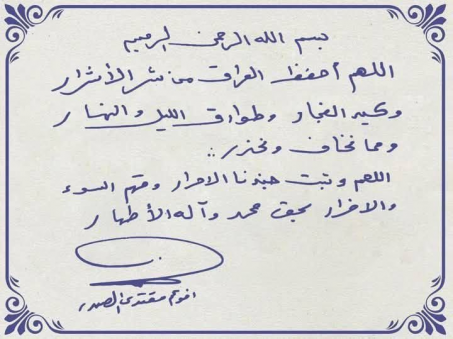 بسم الله الرحمن الرحيم
اللهم احفظ العراق من شر الأشرار
وكيد الفجار وطوارق الليل والنهار
ومما نخاف ونحذر ..
اللهم وثبت جنودنا الاحرار وقهم السوء
والاضرار بحق محمد وآله الأطهار
اخوكم مقتدى الصدر